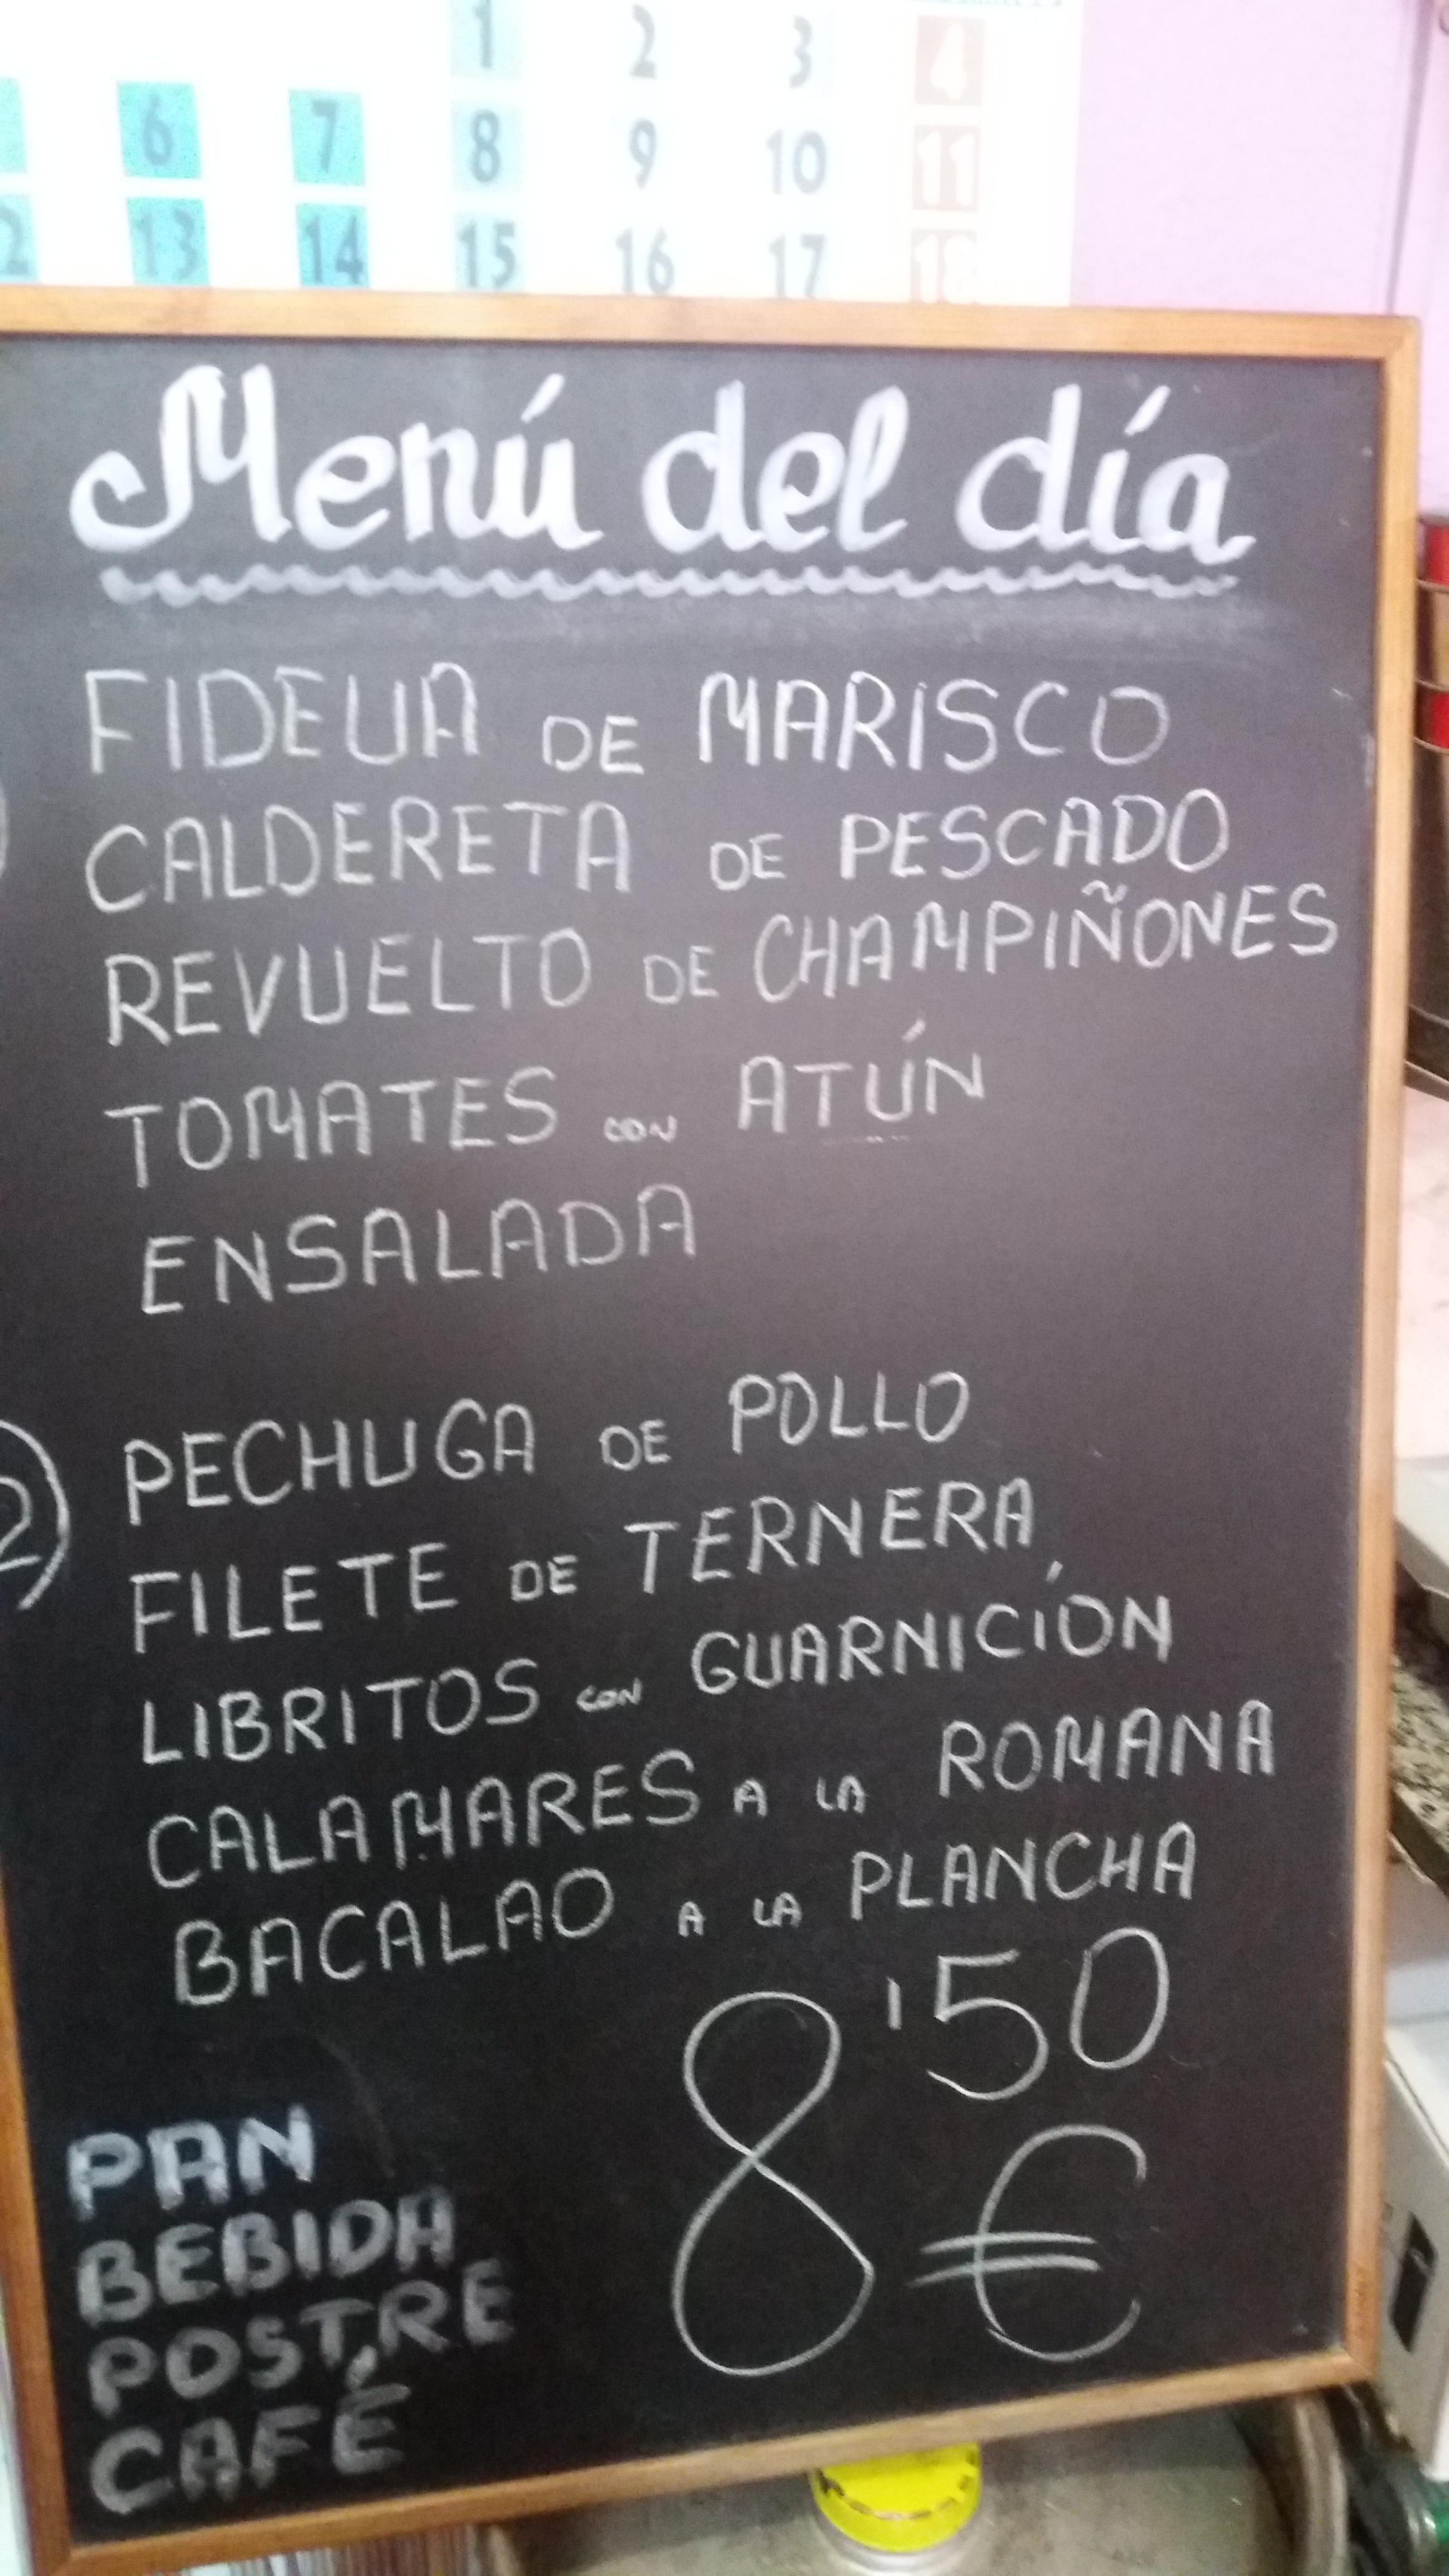 1 2 3 4
6 7 8 9 10 11
2 13 14 15 16 17 18
Menú del día
FIDEUA DE MARISCO
CALDERETA DE PESCADO
REVUELTO DE CHAMPIÑONES
TOMATES CON ATÚN
ENSALADA
2) PECHUGA DE POLLO
FILETE DE TERNERA
LIBRITOS CON GUARNICIÓN
CALAMARES A LA ROMANA
BACALAO A LA PLANCHA
8'50 €
PAN
BEBIDA
POSTRE
CAFÉ